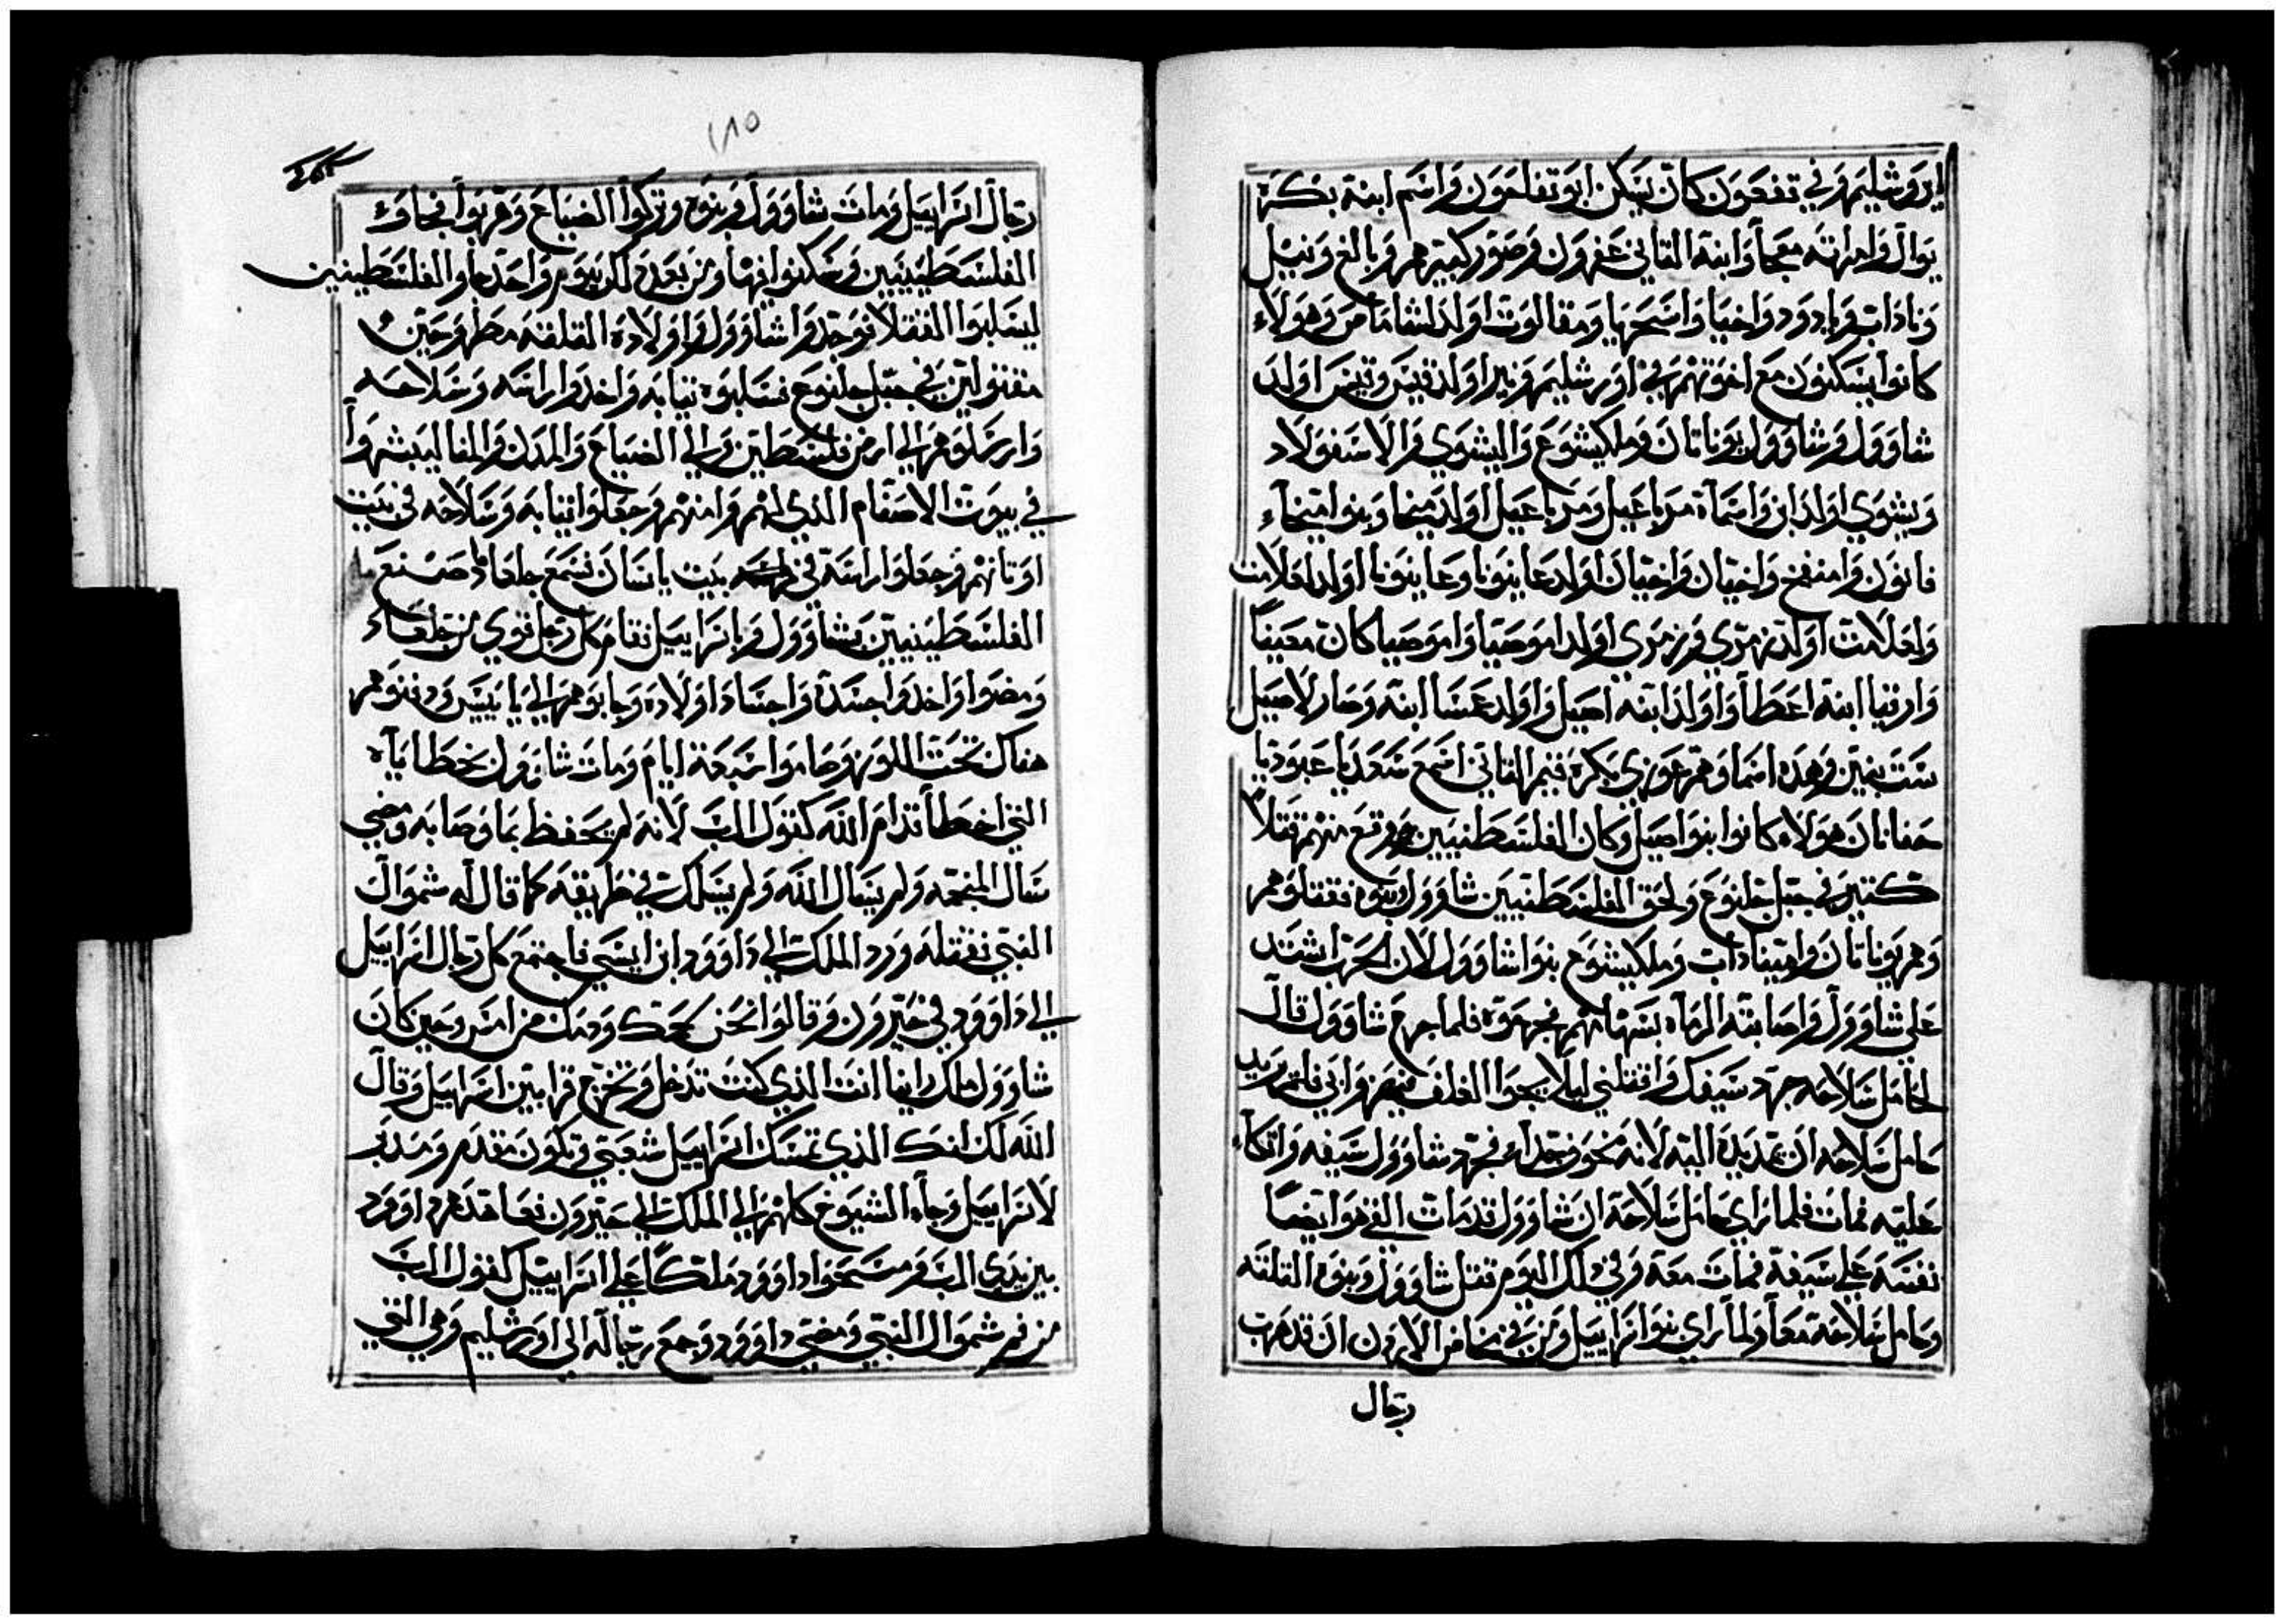 ايروشليم وفي تفعون كان يسكن ابو تفاحون واسم ابنة بكرة
يوال وامراته معجا وابنة الثاني عفرون وصور كبيرهم وبالغ ونبيل
وناداب وبادود واخيا واسحريا ومقالوت اولد لشاماص وهولاء
كانوا يسكنون مع اخوتهم في اورشليم ونير اولد قيس وقيس اولد
شاوول وشاوول يوناتان وملكيشوع واليشوي والاسفولاد
ويشوي اولد ابن واسماه مرباعيل ومرباعيل اولد ميخا وبنوا ميخاء
فانون وامنفح واخيان واخيان اولد عاينونا وعاينونا اولد لعلامت
ولعلامت اولد زمري وزمري اولد اموصيا واموصيا كان معيناً
وارفيا ابنة اعطا واولد ابنه اصيل واولد عسا ابنه وصار لاصيل
ست بنين وهذه اسما وهم عوزي بكره فنيم الثاني اسمع سعديا عبوديا
حفانان هولاء كانوا بنوا اصيل وكان الفلسطنيين وقع منهم قتلا
كتير في جبل جلنوع ولحق الفلسطنيين شاوول وبنوه فقتلوهم
وهم يوناتان وامينا داب وملكيشوع بنوا شاوول لان الحرب اشتد
على شاوول واصابته الرماه بسهامهم فجرحوه فلما جرح شاوول قال
لحامل سلاحه جرد سيفك واقتلني ليلا يجوا الغلف فيهزوا بي فلم يريد
حامل سلاحه ان يمد يده البته لانه مخوف جداً فجرد شاوول سيفه واتكاء
عليه فمات فلما راي حامل سلاحه ان شاوول قد مات القي هو ايضاً
نفسه على سيفه فمات معه وفي ذلك اليوم قتل شاوول وبنوه التلته
وحامل سلاحه معاً ولما راي بنوا اسراييل ومن في مخاض الاردن ان قد هرب
رجال
١٨٥
رجال اسراييل ومات شاوول وبنوه وتركوا الضياع وهربوا فجاوء
الفلسطينيين وسكنوا فيها ومن بعد ذلك بيوم واحد جاوا الفلسطينين
ليسلبوا القتلا فوجدوا شاوول واولاده التلته مطروحين
مقتولين في جبل جلنوع فسلبوه تيابه واخدوا راسه وسلاحه
وارسلوهم الي ارض فلسطين والي الضياع والمدن والقفا ليبشروا
في بيوت الاصنام الذي لهم وامنهم وجعلوا تيابه وسلاحه في بيت
اوتانهم وجعلوا راسه في بيت ياسان فسمع جلعاد ما صنع
الفلسطينيين بشاوول وباسراييل فقام كل رجل قوي من جلعاد
ومضوا واخدوا جسده واجساد اولاده وجابوهم الي يابيس ودفنوهم
هناك تحت اللوز وصاموا سبعة ايام ومات شاوول بخطاياه
التي اخطا قدام الله كقول الرب لانه لم يحفظ بما وصا به ومضي
سال المنجمه ولم يسال الله ولم يسلك في طريقه كما قال له شموال
النبي فقتله ورد الملك الي داوود ابن ايسي فاجتمع كل رجال اسراييل
الي داوود في حبرون وقالوا نحن لحمك ودمك من امس وحين كان
شاوول ملك راينا انت الذي كنت تدخل وتخرج قرابين اسراييل وقال
الله لك انك الذي تمسك اسراييل شعبي وتكون مقدم ومدبر
لاسراييل وجاء الشيوخ كلهم الي الملك الي حبرون فعاهدهم داوود
بين يدي الرب ومسحوا داوود ملكاً على اسراييل كقول الرب
من فم شموال النبي ومضي داوود وجمع رجاله الي اورشليم وهي التي